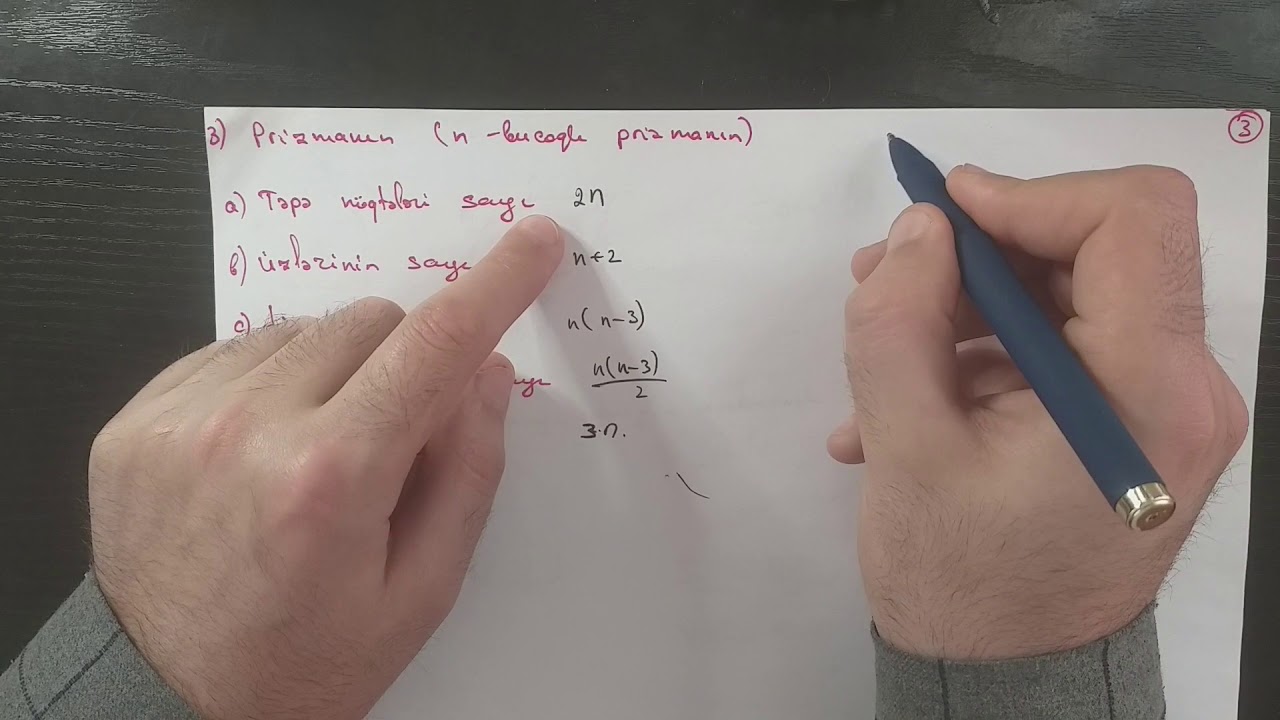 3) Prizmanın (n-bucaqlı prizmanın) 3
a) Təpə nöqtələri sayı 2n
b) üzlərinin sayı n+2
c) n(n-3)
n(n-3)/2
3·n.